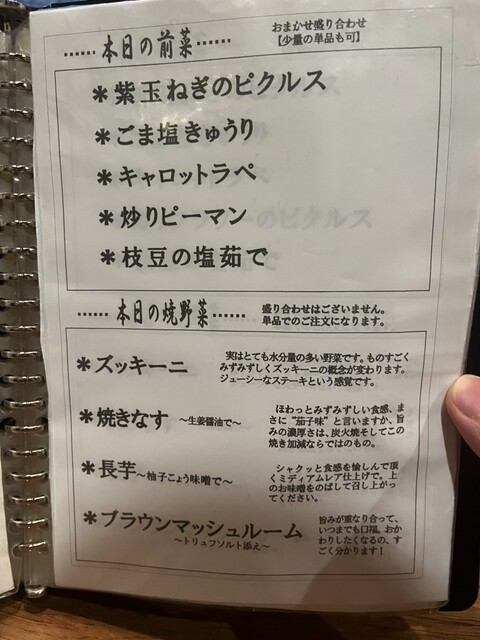 ……本日の前菜……
おまかせ盛り合わせ
【少量の単品も可】
＊紫玉ねぎのピクルス
＊ごま塩きゅうり
＊キャロットラペ
＊炒りピーマン
＊枝豆の塩茹で
……本日の焼野菜……
盛り合わせはございません。
単品でのご注文になります。
＊ズッキーニ
実はとても水分量の多い野菜です。ものすごく
みずみずしくズッキーニの概念が変わります。
ジューシーなステーキという感覚です。
＊焼きなす ～生姜醤油で～
ほわっとみずみずしい食感、ま
さに"茄子味"と言いますか、旨
みの濃厚さは、炭火焼そしてこの
焼き加減ならではのもの。
＊長芋～柚子こょう味噌で～
シャクッと食感を愉しんで頂
くミディアムレア仕上げで。上
のお味噌をのばして召し上がっ
てください。
＊ブラウンマッシュルーム
～トリュフソルト添え～
旨みが重なり合って、
いつまでも口福。おか
わりしたくなるの、す
ごく分かります！